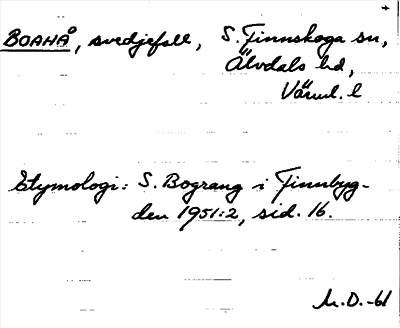 BOAHÅ, svedjefall, S. Finnskoga sn,
Älvdals hd,
Värml. l
Etymologi: S. Bograng i Finnbyg-
den 1951:2, sid. 16.
M.O.-61